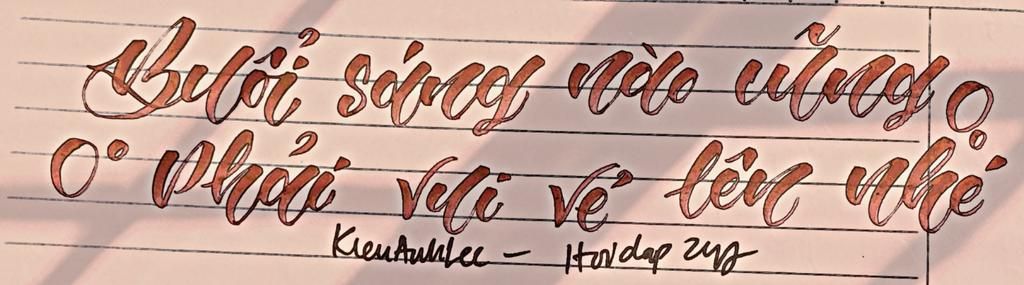 Buổi sáng nào cũng
phải vui vẻ lên nhé
KieuAnhLee - Hoidap 247